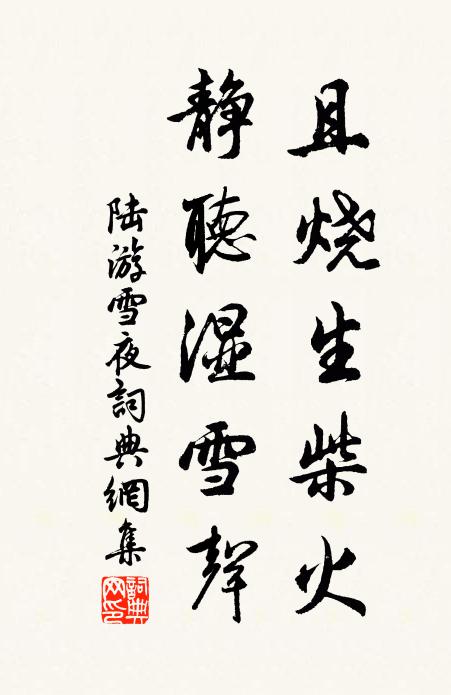 且烧生柴火
静聽湿雪聲
陆游雪夜詞典網集
詞典网印